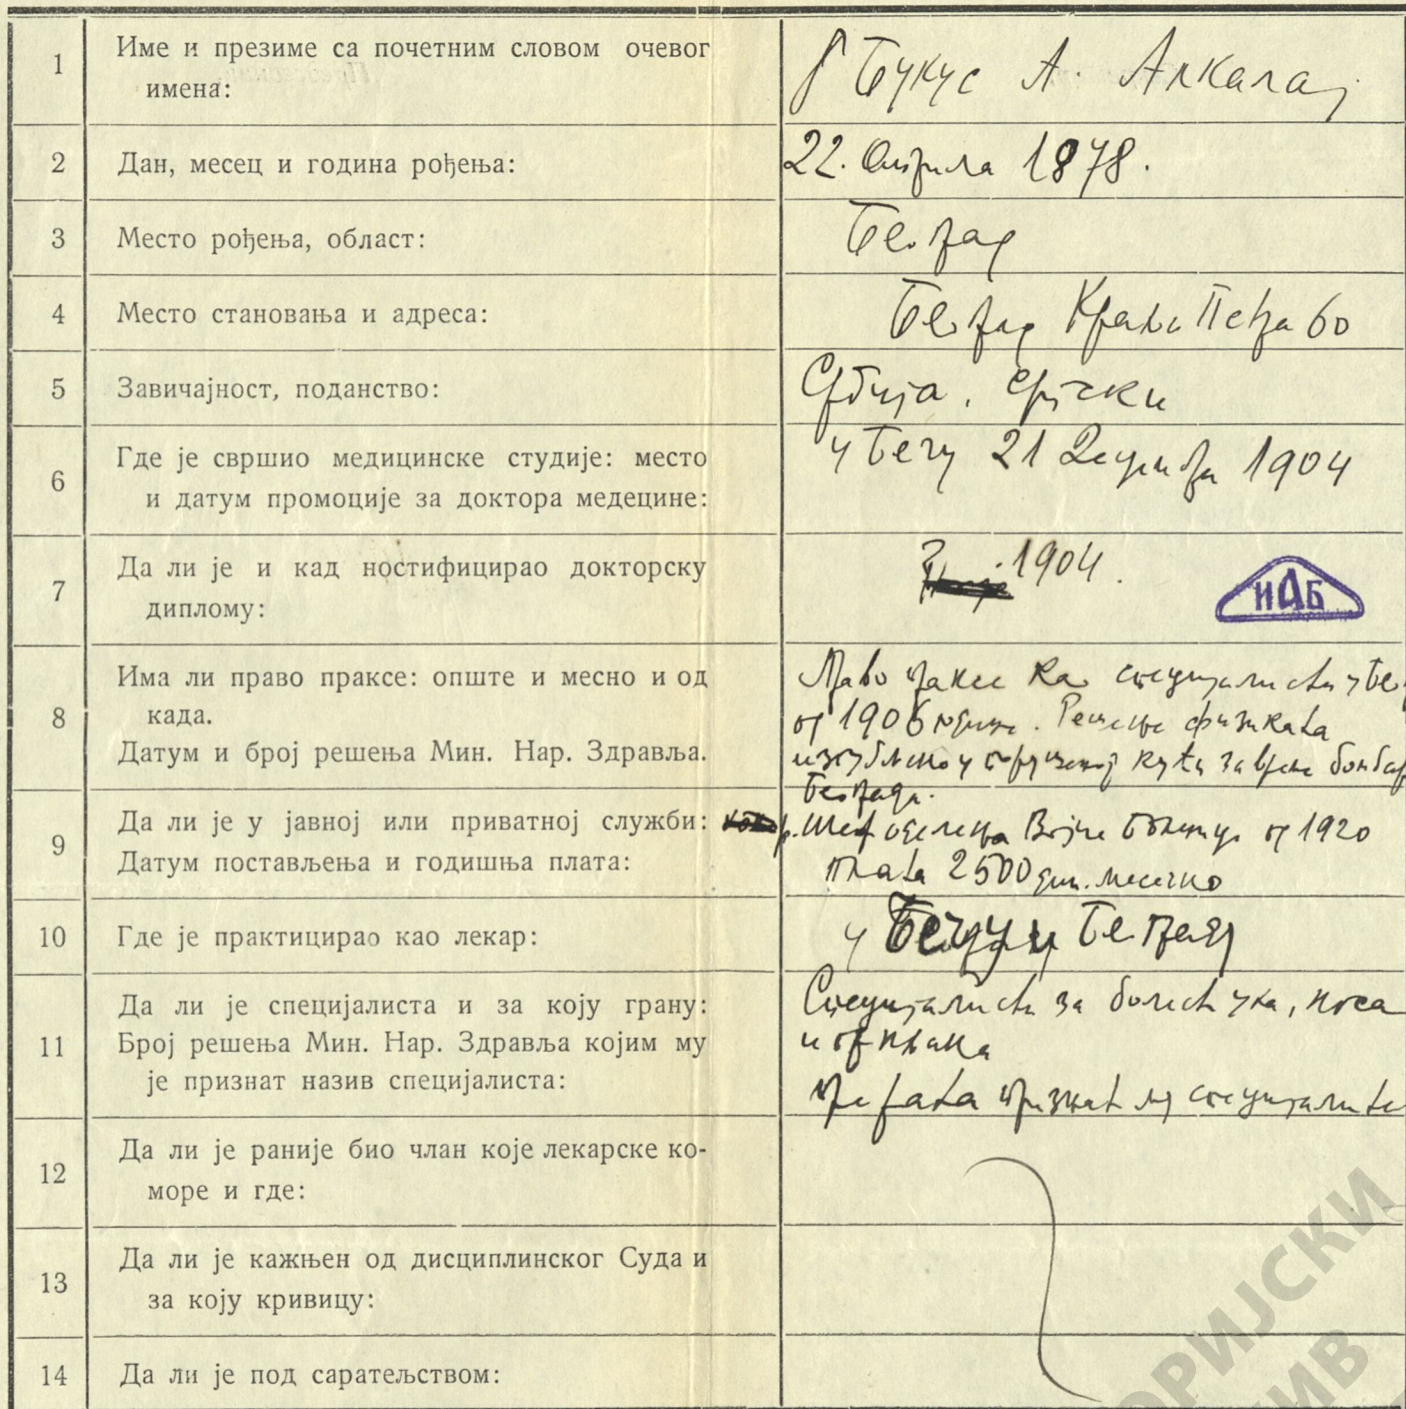 1 Име и презиме са почетним словом очевог
имена:
Букус А. Алкалај
2 Дан, месец и година рођења:
22. Априла 1878.
3 Место рођења, област:
Београд
4 Место становања и адреса:
Београд Краља Петра 60
5 Завичајност, поданство:
Србија, српски
6 Где је свршио медицинске студије: место
и датум промоције за доктора медецине:
у Бечу 21 Децембра 1904
7 Да ли је и кад ностифицирао докторску
диплому:
1904.
ИАБ
8 Има ли право праксе: опште и месно и од
када.
Датум и број решења Мин. Нар. Здравља.
Право праксе као специјалиста у Бео
од 1906 године. Решење физиката
изгубљено у порушеној кући за време бомбар
Београда.
9 Да ли је у јавној или приватној служби:
Датум постављења и годишња плата:
Шеф одељења Војне болнице од 1920
плата 2500 дин. месечно
10 Где је практицирао као лекар:
у Бечу и Београду
11 Да ли је специјалиста и за коју грану:
Број решења Мин. Нар. Здравља којим му
је признат назив специјалиста:
Специјалиста за болести ува, носа
и гркљана
пре рата признат специјалиста
12 Да ли је раније био члан које лекарске ко-
море и где:
13 Да ли је кажњен од дисциплинског Суда и
за коју кривицу:
14 Да ли је под саратељством:
ОРИЈСКИ
ИВ